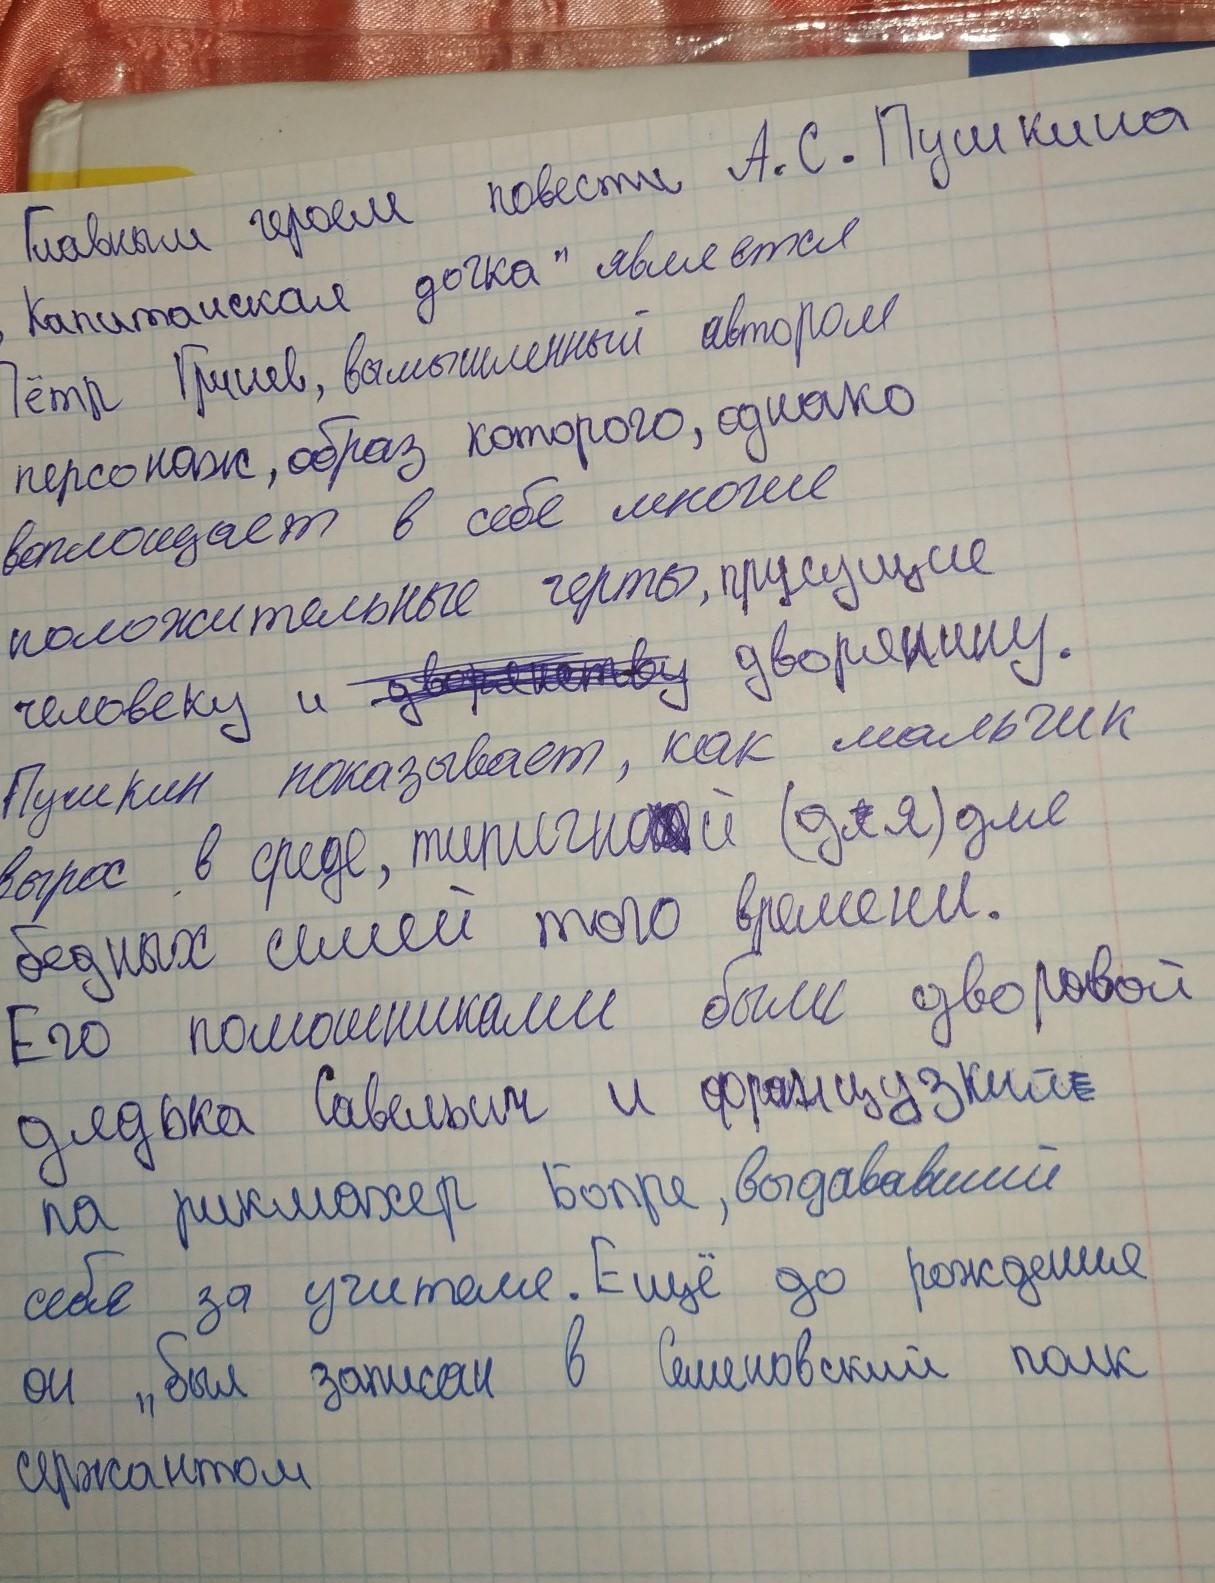 Главным героем повести А.С. Пушкина
„Капитанская дочка" является
Пётр Гринев, вымышленный автором
персонаж, образ которого, однако
воплощает в себе многие
положительные черты, присущие
человеку и дворянству дворянину.
Пушкин показывает, как мальчик
вырос в среде, типичной (для) для
бедных семей того времени.
Его помошниками были дворовой
дядька Савельич и французкий
парикмахер Бопре, выдававший
себя за учителя. Ещё до рождения
он „был записан в Семеновский полк
сержантом